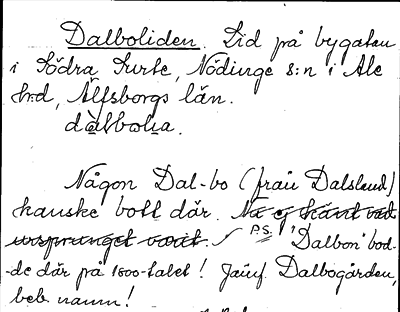 Dalboliden. Lid på bygatan
i Södra Surte, Nödinge s:n i Ale
h:d, Älfsborgs län.
dàlbωlia.
Någon Dal-bo (från Dalsland)
kanske bott där. Na ej känt vad
ursprunget varit. P.S. 'Dalbon' bod-
-de där på 1800-talet! Jämf. Dalbogården,
beb. namn!